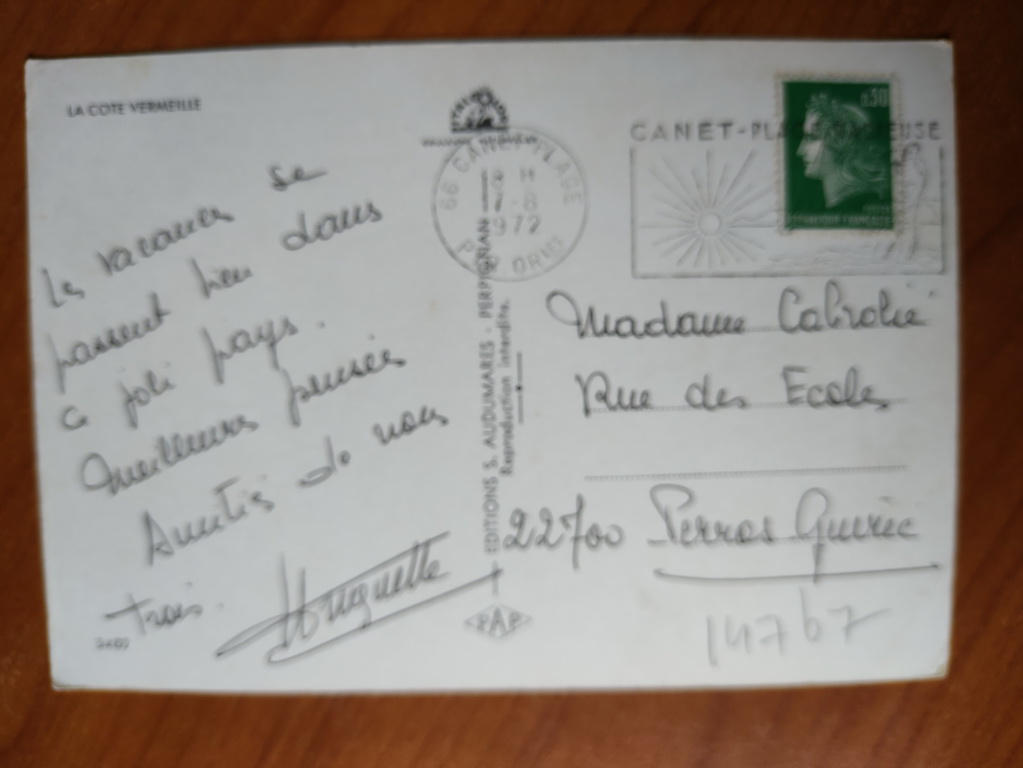 LA COTE VERMEILLE
Les vacances se
passent bien dans
ce joli pays.
Meilleures pensées
Amitiés de nous
trois.
Huguette
66 CANET-PLAGE
18 H
17-8
1972
P. ORIENT
EDITIONS S. AUDUMARES - PERPIGNAN
Reproduction interdite.
PAP
CANET-PLAGE
0,30
REPUBLIQUE FRANÇAISE
Madame
Rue des Ecoles
22700 Perros Guirec
14767